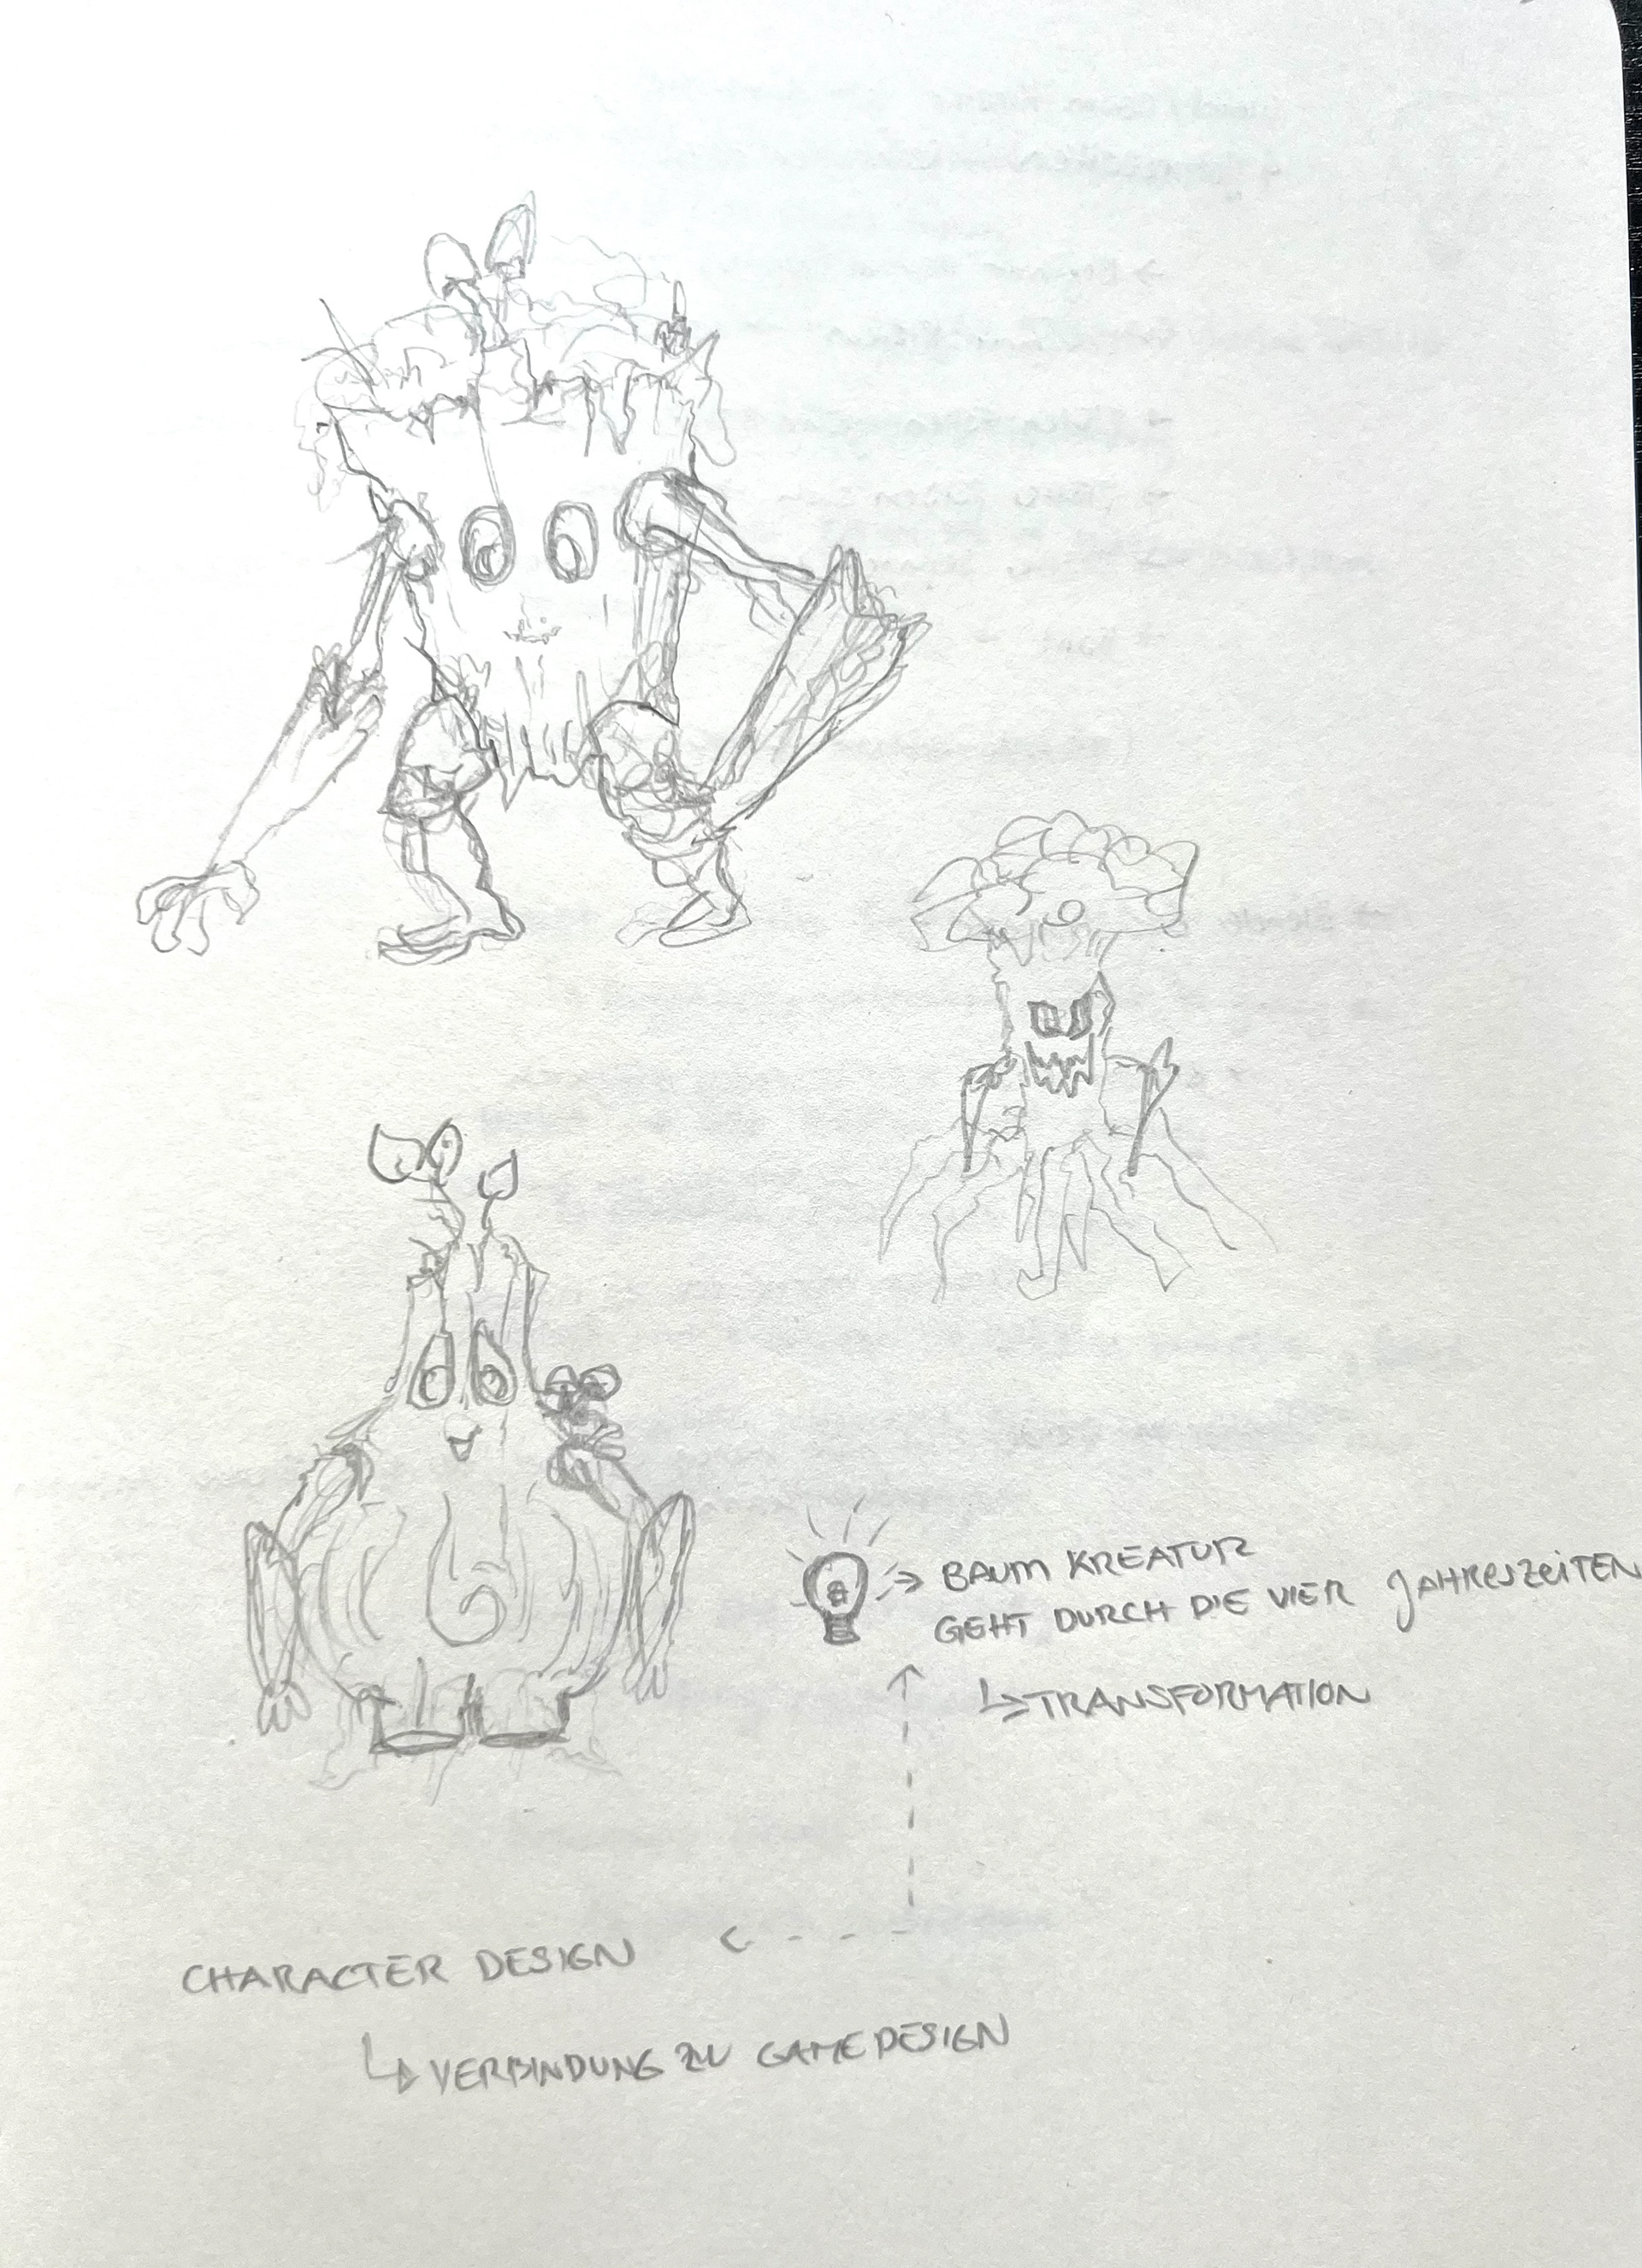 BAUM KREATUR
GEHT DURCH DIE VIER JAHRESZEITEN
TRANSFORMATION
CHARACTER DESIGN
VERBINDUNG ZU GAMEDESIGN